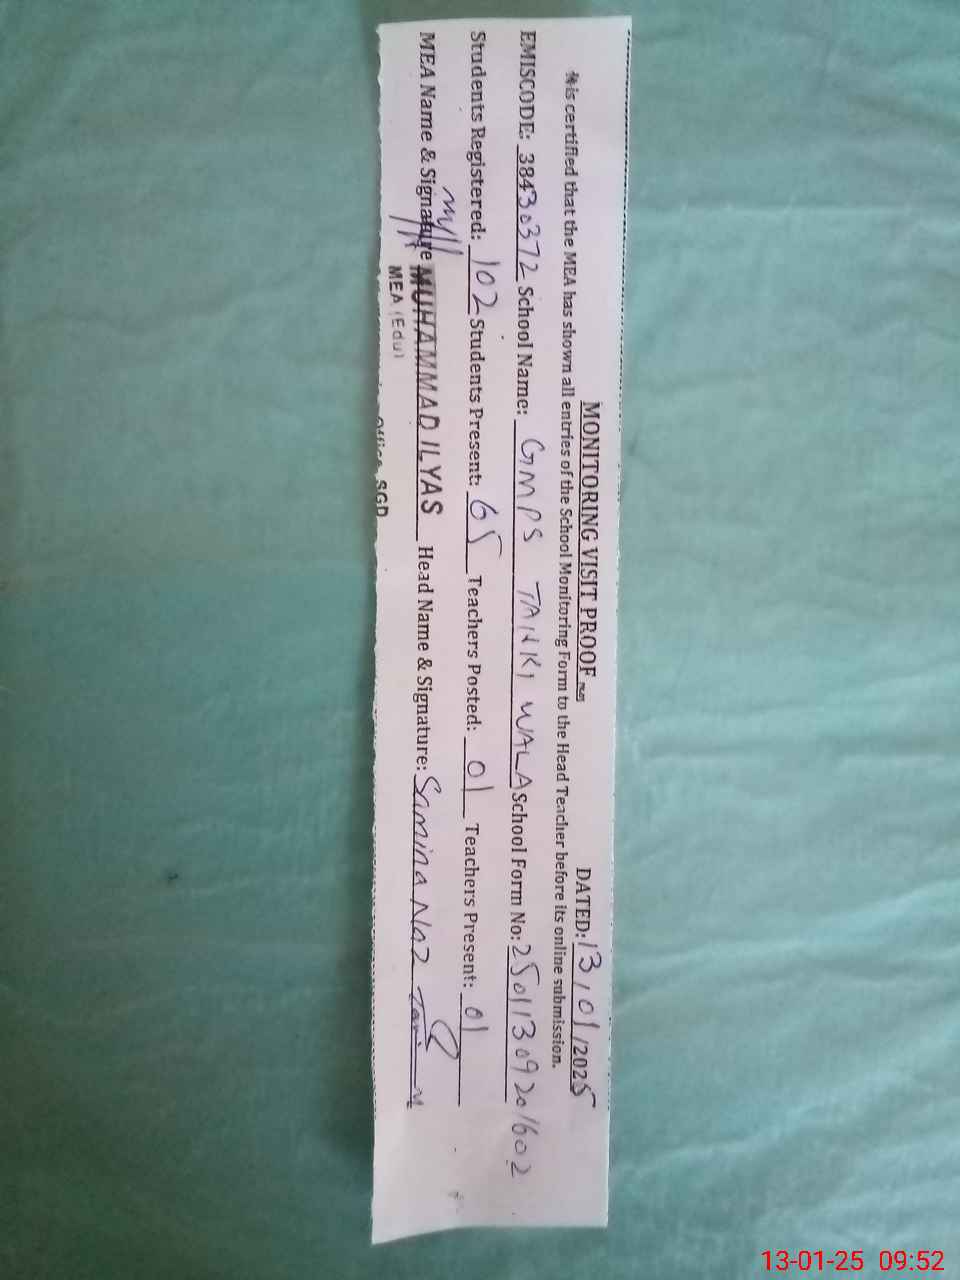 MONITORING VISIT PROOF DATED: 13/01/2025
It is certified that the MEA has shown all entries of the School Monitoring Form to the Head Teacher before its online submission.
EMISCODE: 38430372 School Name: GMPS TANKI WALA School Form No: 25011309201602
Students Registered: 102 Students Present: 65 Teachers Posted: 01 Teachers Present: 01
MEA Name & Signature MUHAMMAD ILYAS Head Name & Signature: Samina Naz
MEA (Edu)
Office, SGD
13-01-25 09:52